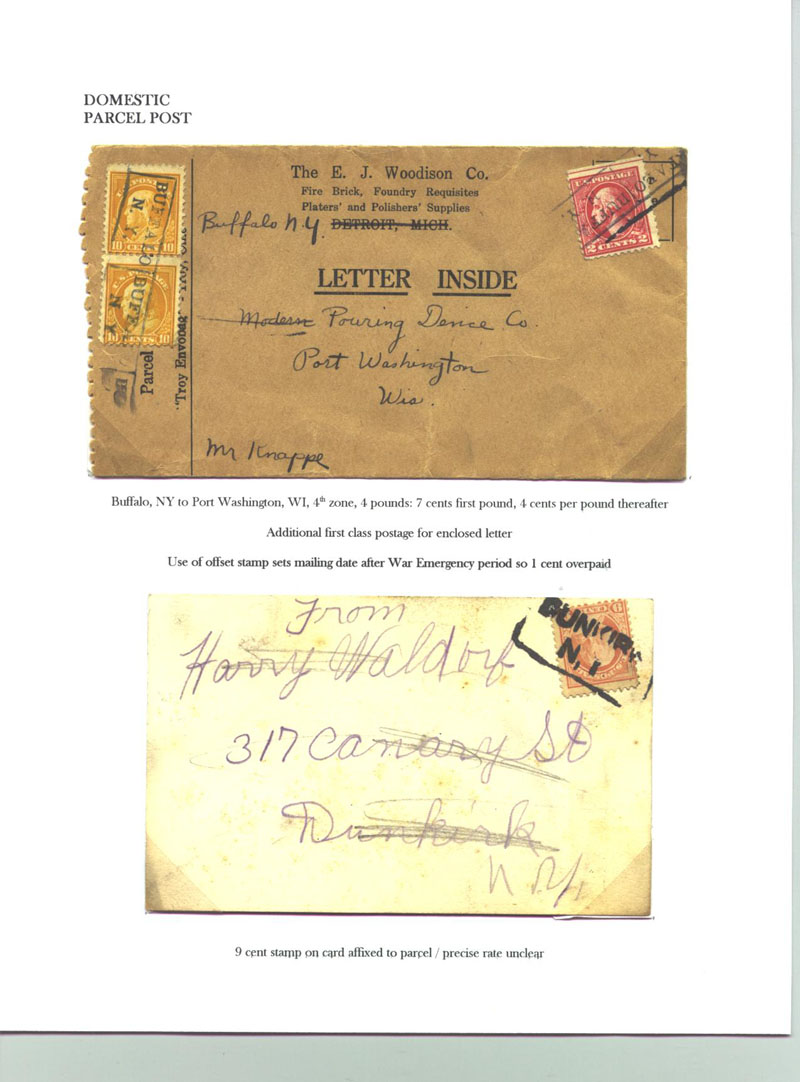 DOMESTIC
PARCEL POST
The E. J. Woodison Co.
Fire Brick, Foundry Requisites
Platers' and Polishers' Supplies
Buffalo N.Y. DETROIT, MICH.
LETTER INSIDE
Modern Pouring Device Co.
Port Washington
Wis.
Mr Knappe
U.S. POSTAGE
10 CENTS 10
BUFFALO
N. Y.
10 CENTS 10
BUFFALO
N. Y.
Parcel
"Troy
U.S. POSTAGE
2 CENTS 2
Buffalo, NY to Port Washington, WI, 4th zone, 4 pounds: 7 cents first pound, 4 cents per pound thereafter
Additional first class postage for enclosed letter
Use of offset stamp sets mailing date after War Emergency period so 1 cent overpaid
From
Harry Waldorf
317 Canary St
Dunkirk
N. Y.
DUNKIRK
N.
9
9 cent stamp on card affixed to parcel / precise rate unclear